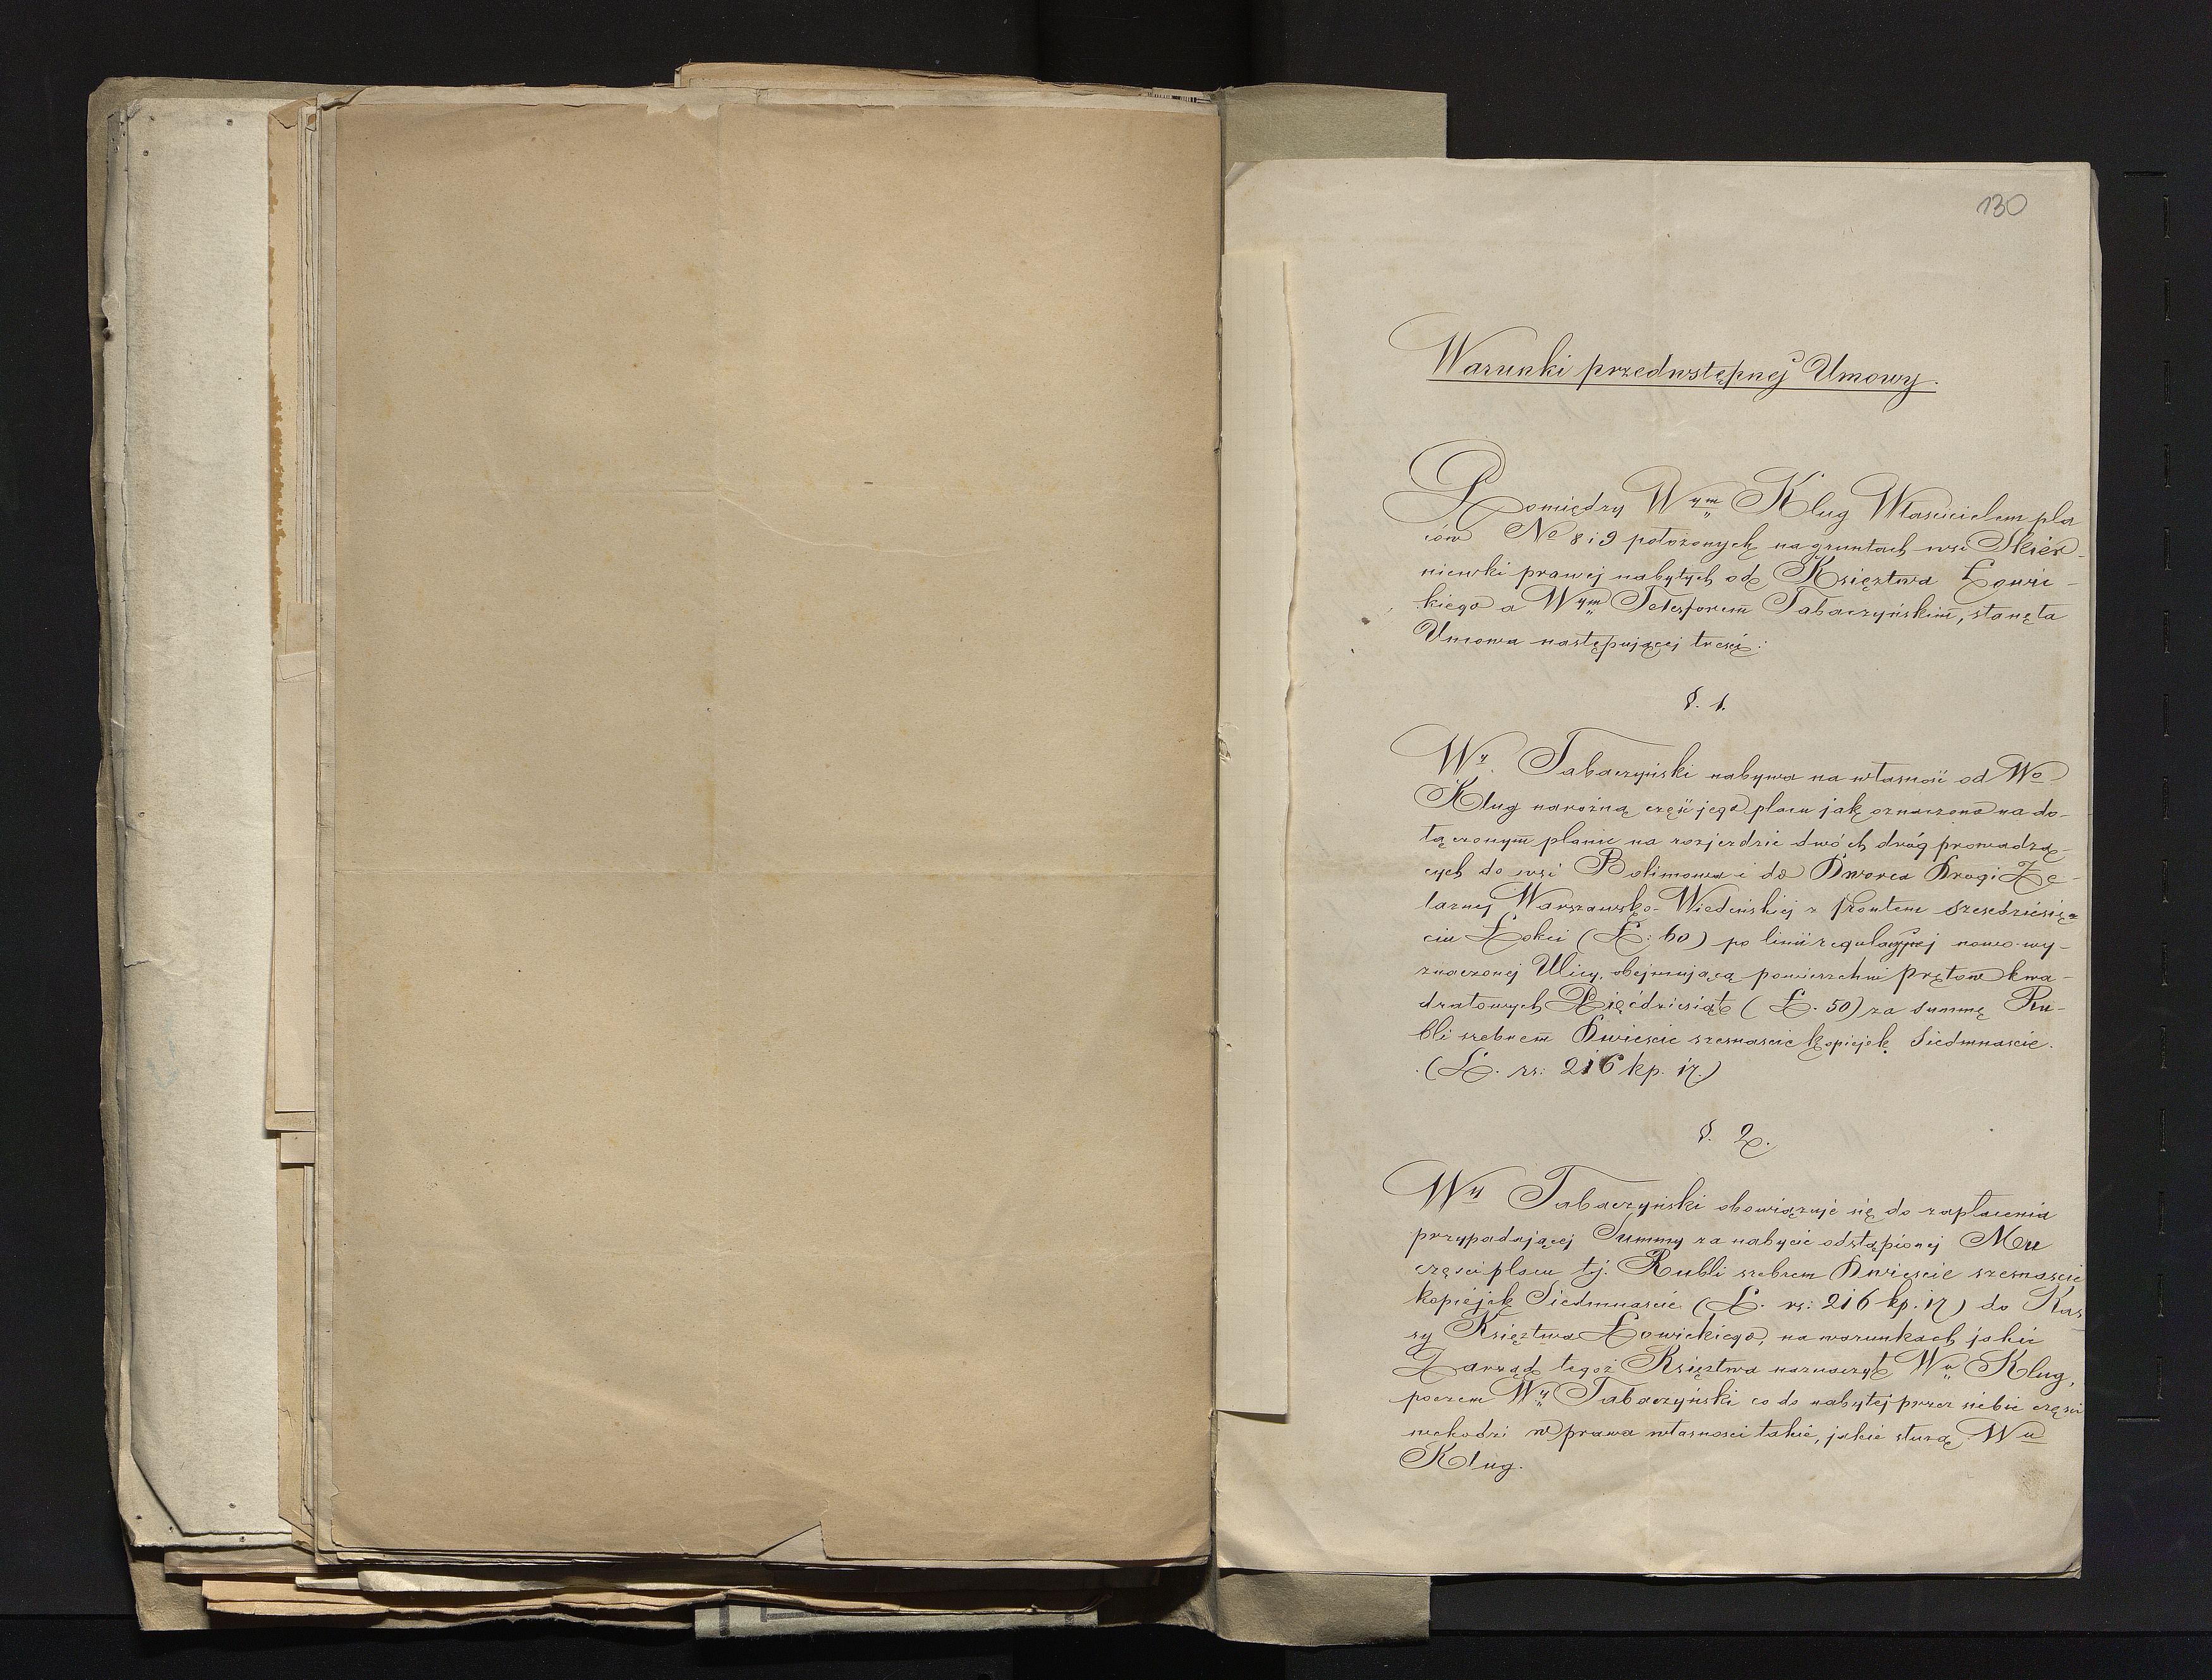 130
Warunki przedwstępnej Umowy.
Pomiędzy Wym Klug Właścicielem pla
ców No 8 i 9 położonych na gruntach wsi Skier-
niewki prawej nabytych od Księztwa Łowic-
kiego a Wym Telesforem Tabaczyńskim, stanęła
Umowa następującej treści:
§. 1.
Wy. Tabaczyński nabywa na własność od Wo
Klug narożną część jego placu jak oznaczono na do-
łączonym planie na rozjezdzie dwóch dróg prowadzą-
cych do wsi Bolimowa i do Dworca Drogi Że-
laznej Warszawsko-Wiedeńskiej z frontem szesedziesię-
ciu Łokci (L: 60) po linii regulacyjnej nowo-wy-
znaczonej Ulicy, obejmującą powierzchni prętów kwa-
dratowych Pięćdziesiąt (L. 50) za summę Ru-
bli srebrem Dwieście szesnaście kopiejek Siedmnaście.
(L. rs: 216 kp. 17.)
§. 2.
Wy Tabaczyński obowiązuje się do zapłacenia
przypadającej Summy za nabycie odstąpionej Mu
części placu tj. Rubli srebrem Dwieście szesnaście
kopiejek Siedmnaście (L. rs: 216 kp. 17) do Kas-
sy Księztwa Łowickiego, na warunkach jakie
Zarząd tegoż Księztwa naznaczył Wu Klug,
poczem Wy Tabaczyński co do nabytej przez siebie części
wchodzi w prawa własności takie, jakie służą Wu
Klug.